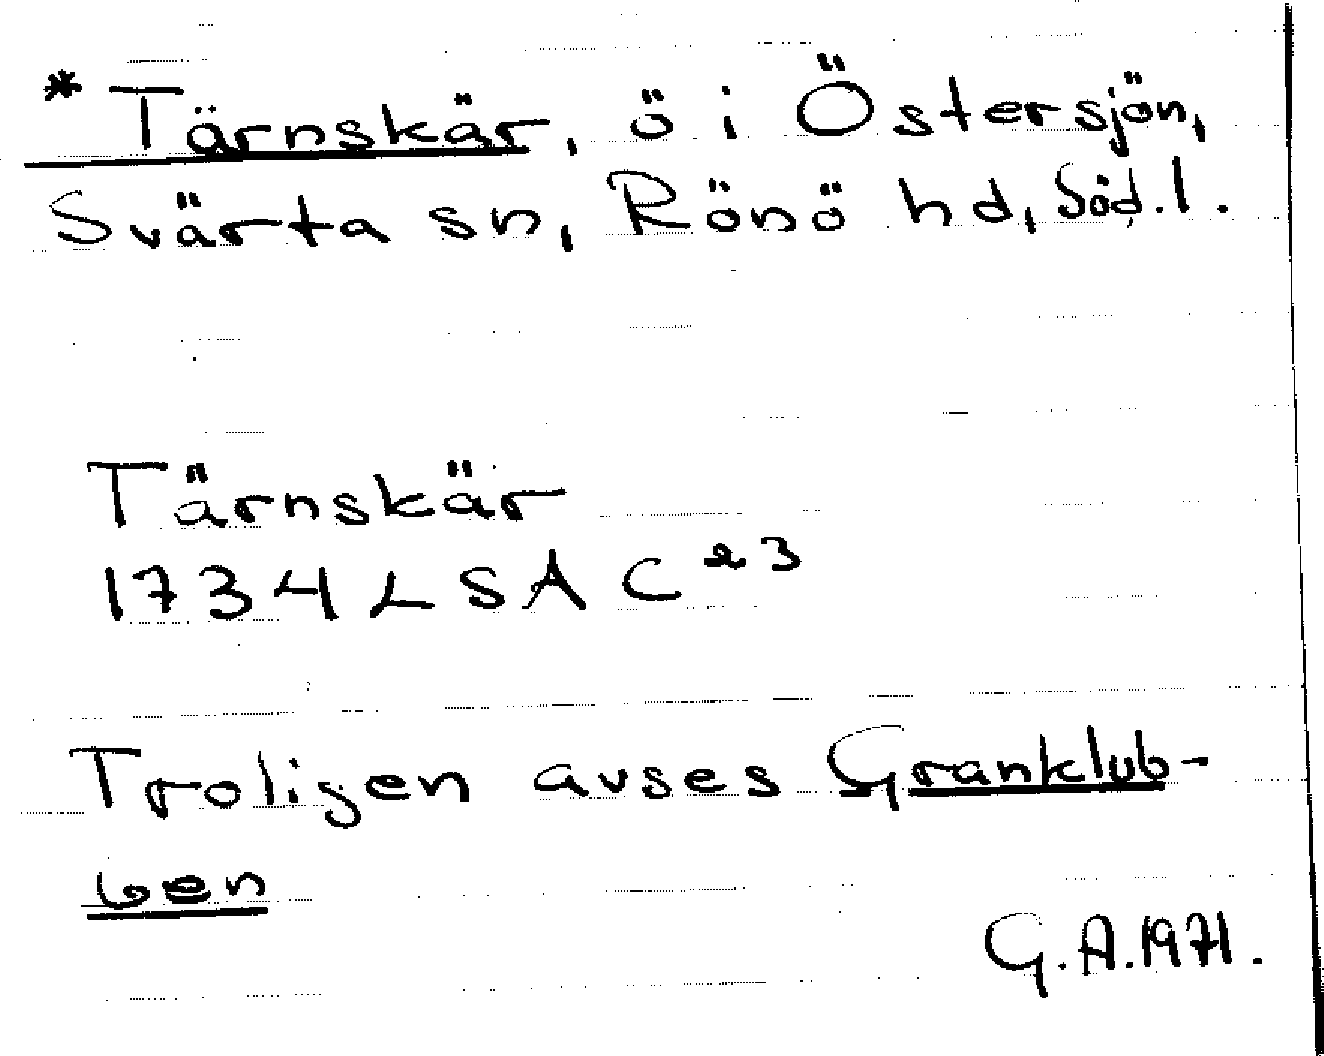 * Tärnskär, ö i Östersjön,
Svärta sn, Rönö hd, Söd.l.
Tärnskär
1734 LSA C 23
Troligen avses Granklub-
ben
G.A.1971.